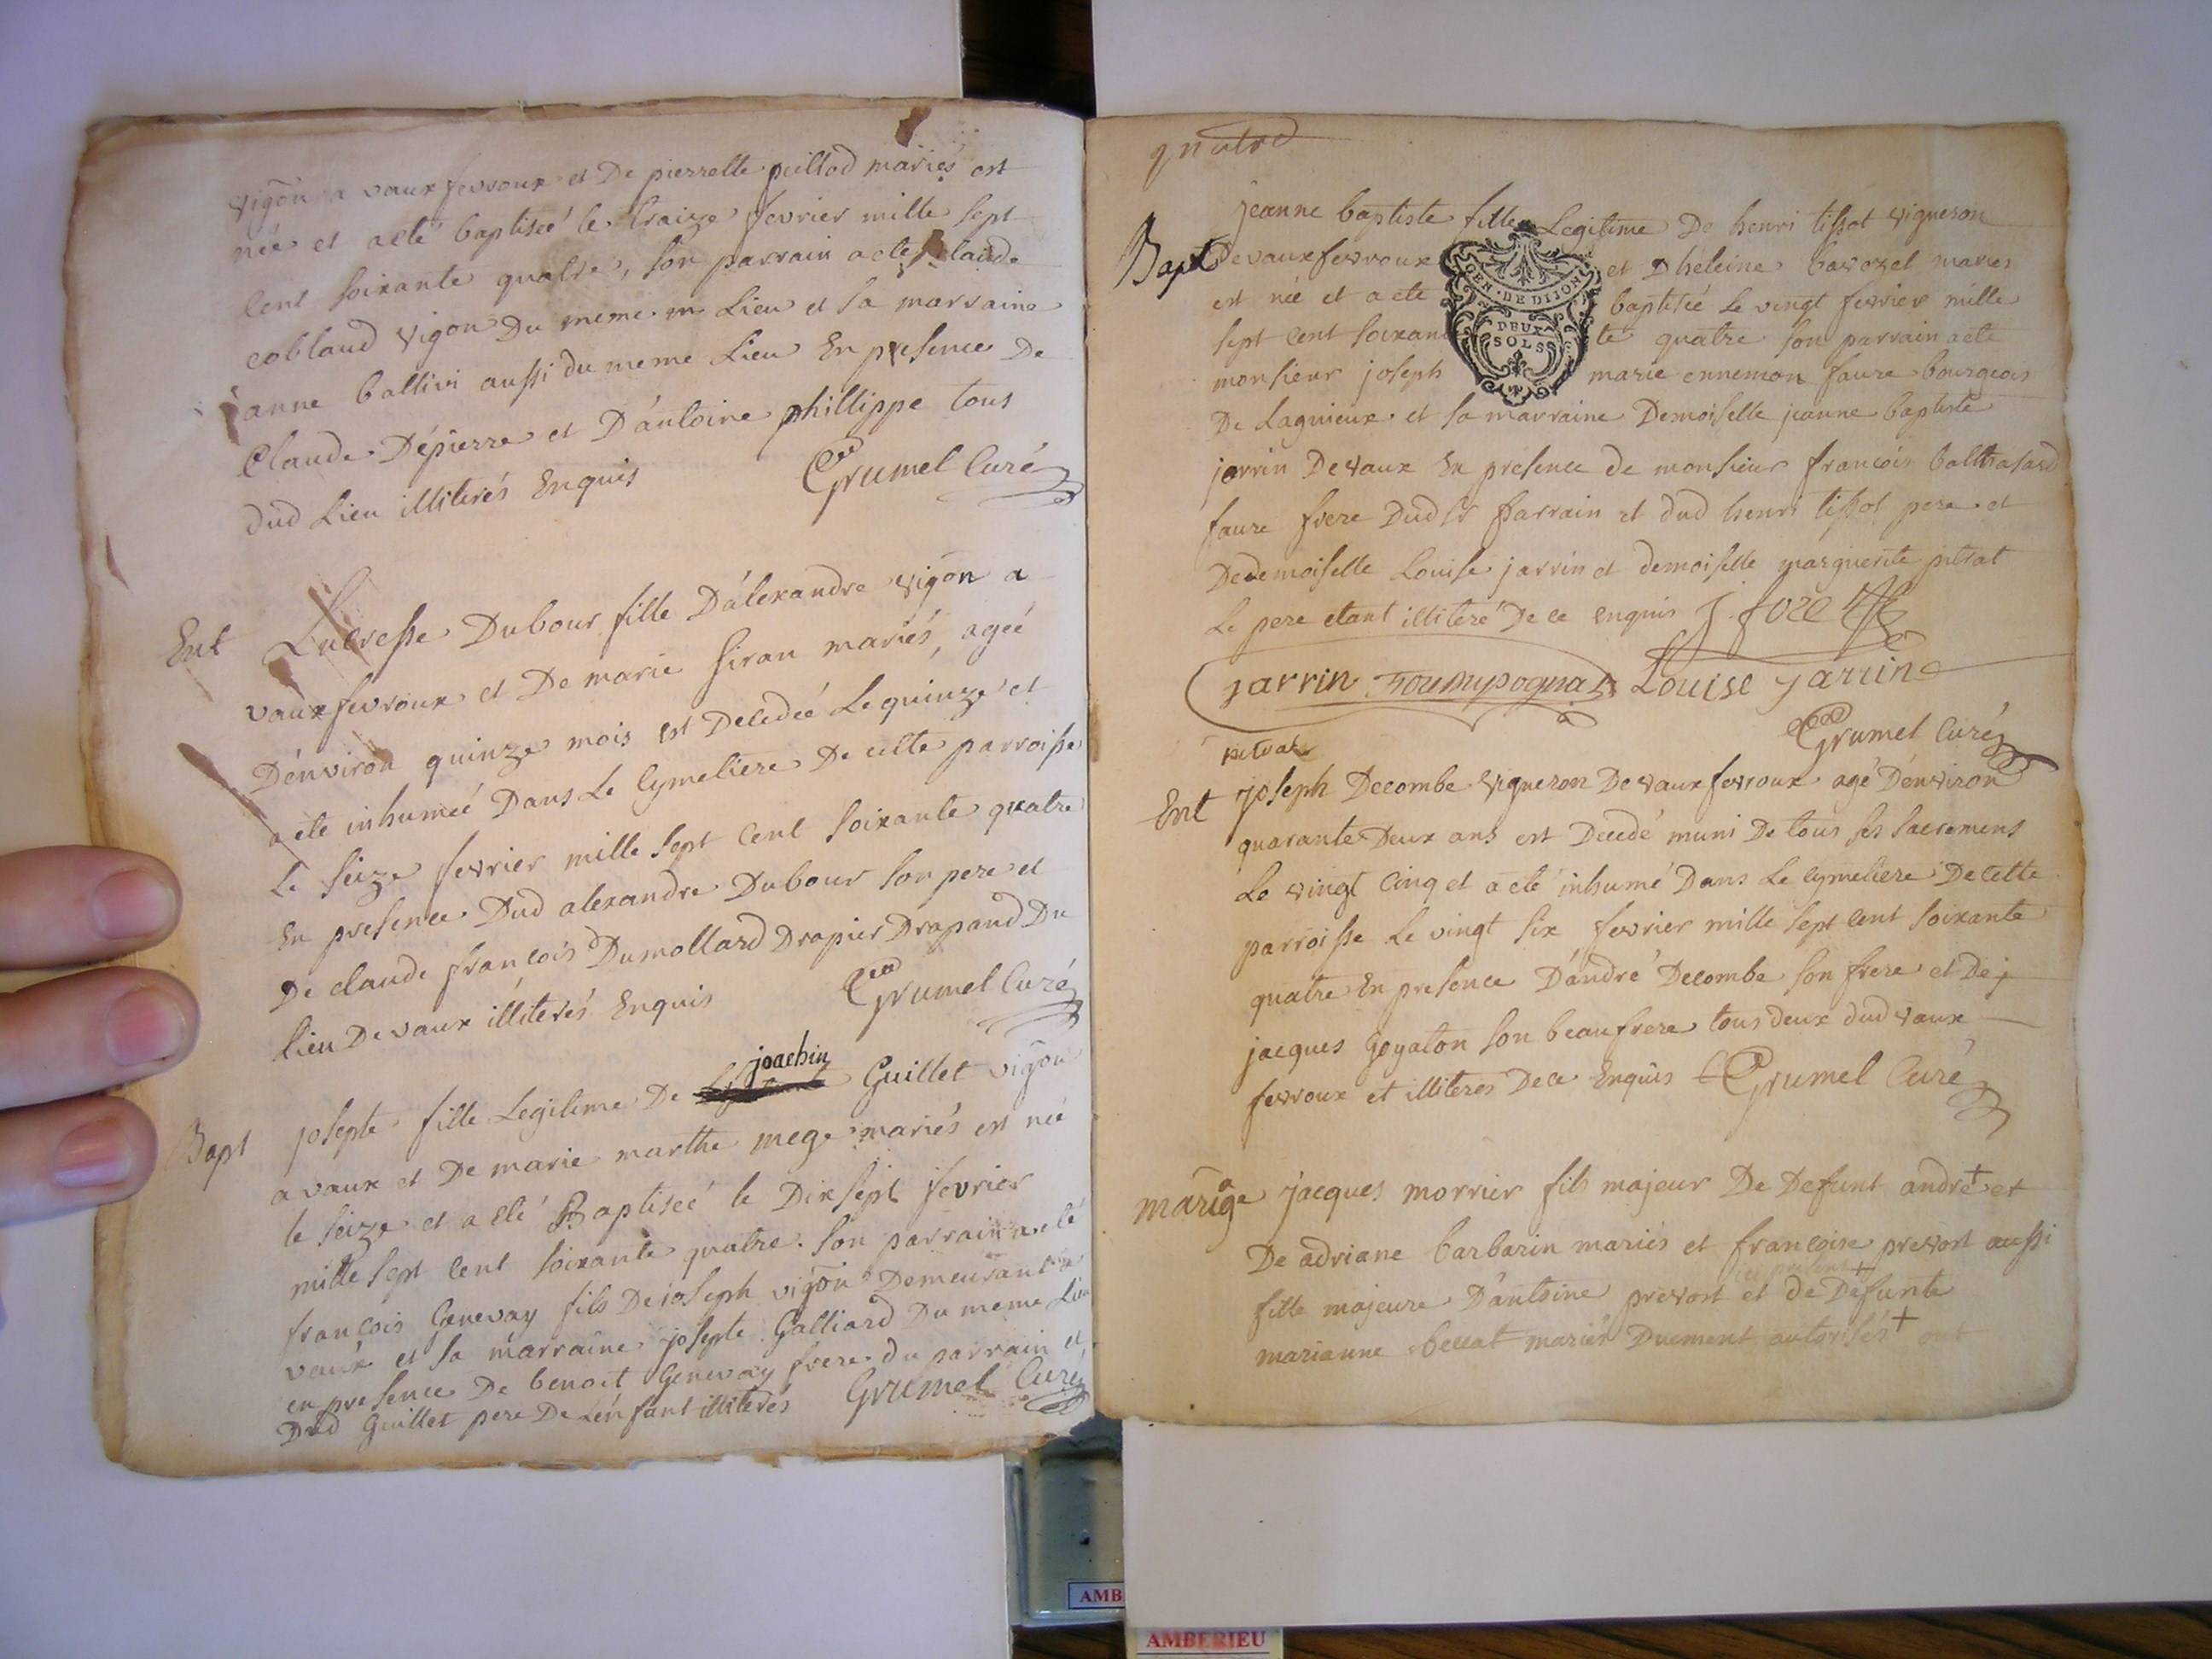 vigõn a vaux fevroux et De pierrette puillod mariés est
née et a eté baptisée le traize fevrier mille sept
cent soixante quatre, son parrain a eté claude
coblaud vigon Du meme m Lieu et sa marraine
janne ballivi aussi du meme Lieu En presence De
Claude Dépierre et D'antoine phillippe tous
dud Lieu illiterés Enquis Grumel Curé
Ent Lucresse Dubour fille D'alexandre vigõn a
vaux fevroux et De marie siran mariés, agée
D'environ quinze mois est Decedée Le quinze et
a eté inhumée Dans Le Cymetiere De cette parroisse
Le seize fevrier mille sept Cent soixante quatre
En presence Dud alexandre Dubour son pere et
De claude françois Dumollard Drapier Drapand Du
lieu De vaux illiterés Enquis Grumel Curé
joachin
Bapt josepte fille Legitime De Guillet vigõn
a vaux et De marie marthe mege mariés est née
le seize et a eté Baptisée le Dix sept fevrier
mille sept cent soixante quatre. son parrain a eté
françois Genevay fils De joseph vigõn Demeurant a
vaux et sa marraine josepte Galliard Du meme Lieu
en presence De benoit Genevay frere du parrain et
Dud Guillet pere De L'enfant illiterés Grumel Curé
quatre
jeanne baptiste fille Legitime De henri tissot vigneron
Bapt De vaux fevroux et D'héleine mariés
est née et a eté baptisée Le vingt fevrier mille
sept cent soixante quatre son parrain a eté
monsieur joseph marie ennemon faure bourgeois
De Lagnieux et sa marraine Demoiselle jeanne baptiste
jarrin De vaux En presence de monsieur françois balthasard
faure frere Dud sr parrain et dud henri tissot pere et
De demoiselle Louise jarrin et demoiselle marguerite pitrat
Le pere etant illiteré De ce enquis J. fore
jarrin Louise jarrin
Grumel Curé
pitrat
Ent joseph Decombe vigneron De vaux fevroux agé D'environ
quarante Deux ans est Decedé muni De tous ses sacremens
Le vingt Cinq et a eté inhumé Dans Le Cymetiere De Cette
parroisse Le vingt six fevrier mille sept cent soixante
quatre En presence D'andré Decombe son frere et De j
jacques Goyaton son beaufrere tous deux dud vaux
fevroux et illiteres De ce Enquis Grumel Curé
mariage jacques morrier fils majeur De Defunt andre + et
De adriane barbarin mariés et françoise prevost aussi
fille majeure D'antoine prevost + et de Defunte
marianne beccat mariés Duement autorisés + ont
GEN · DE DIJON
DEUX
SOLS
AMB
AMBERIEU